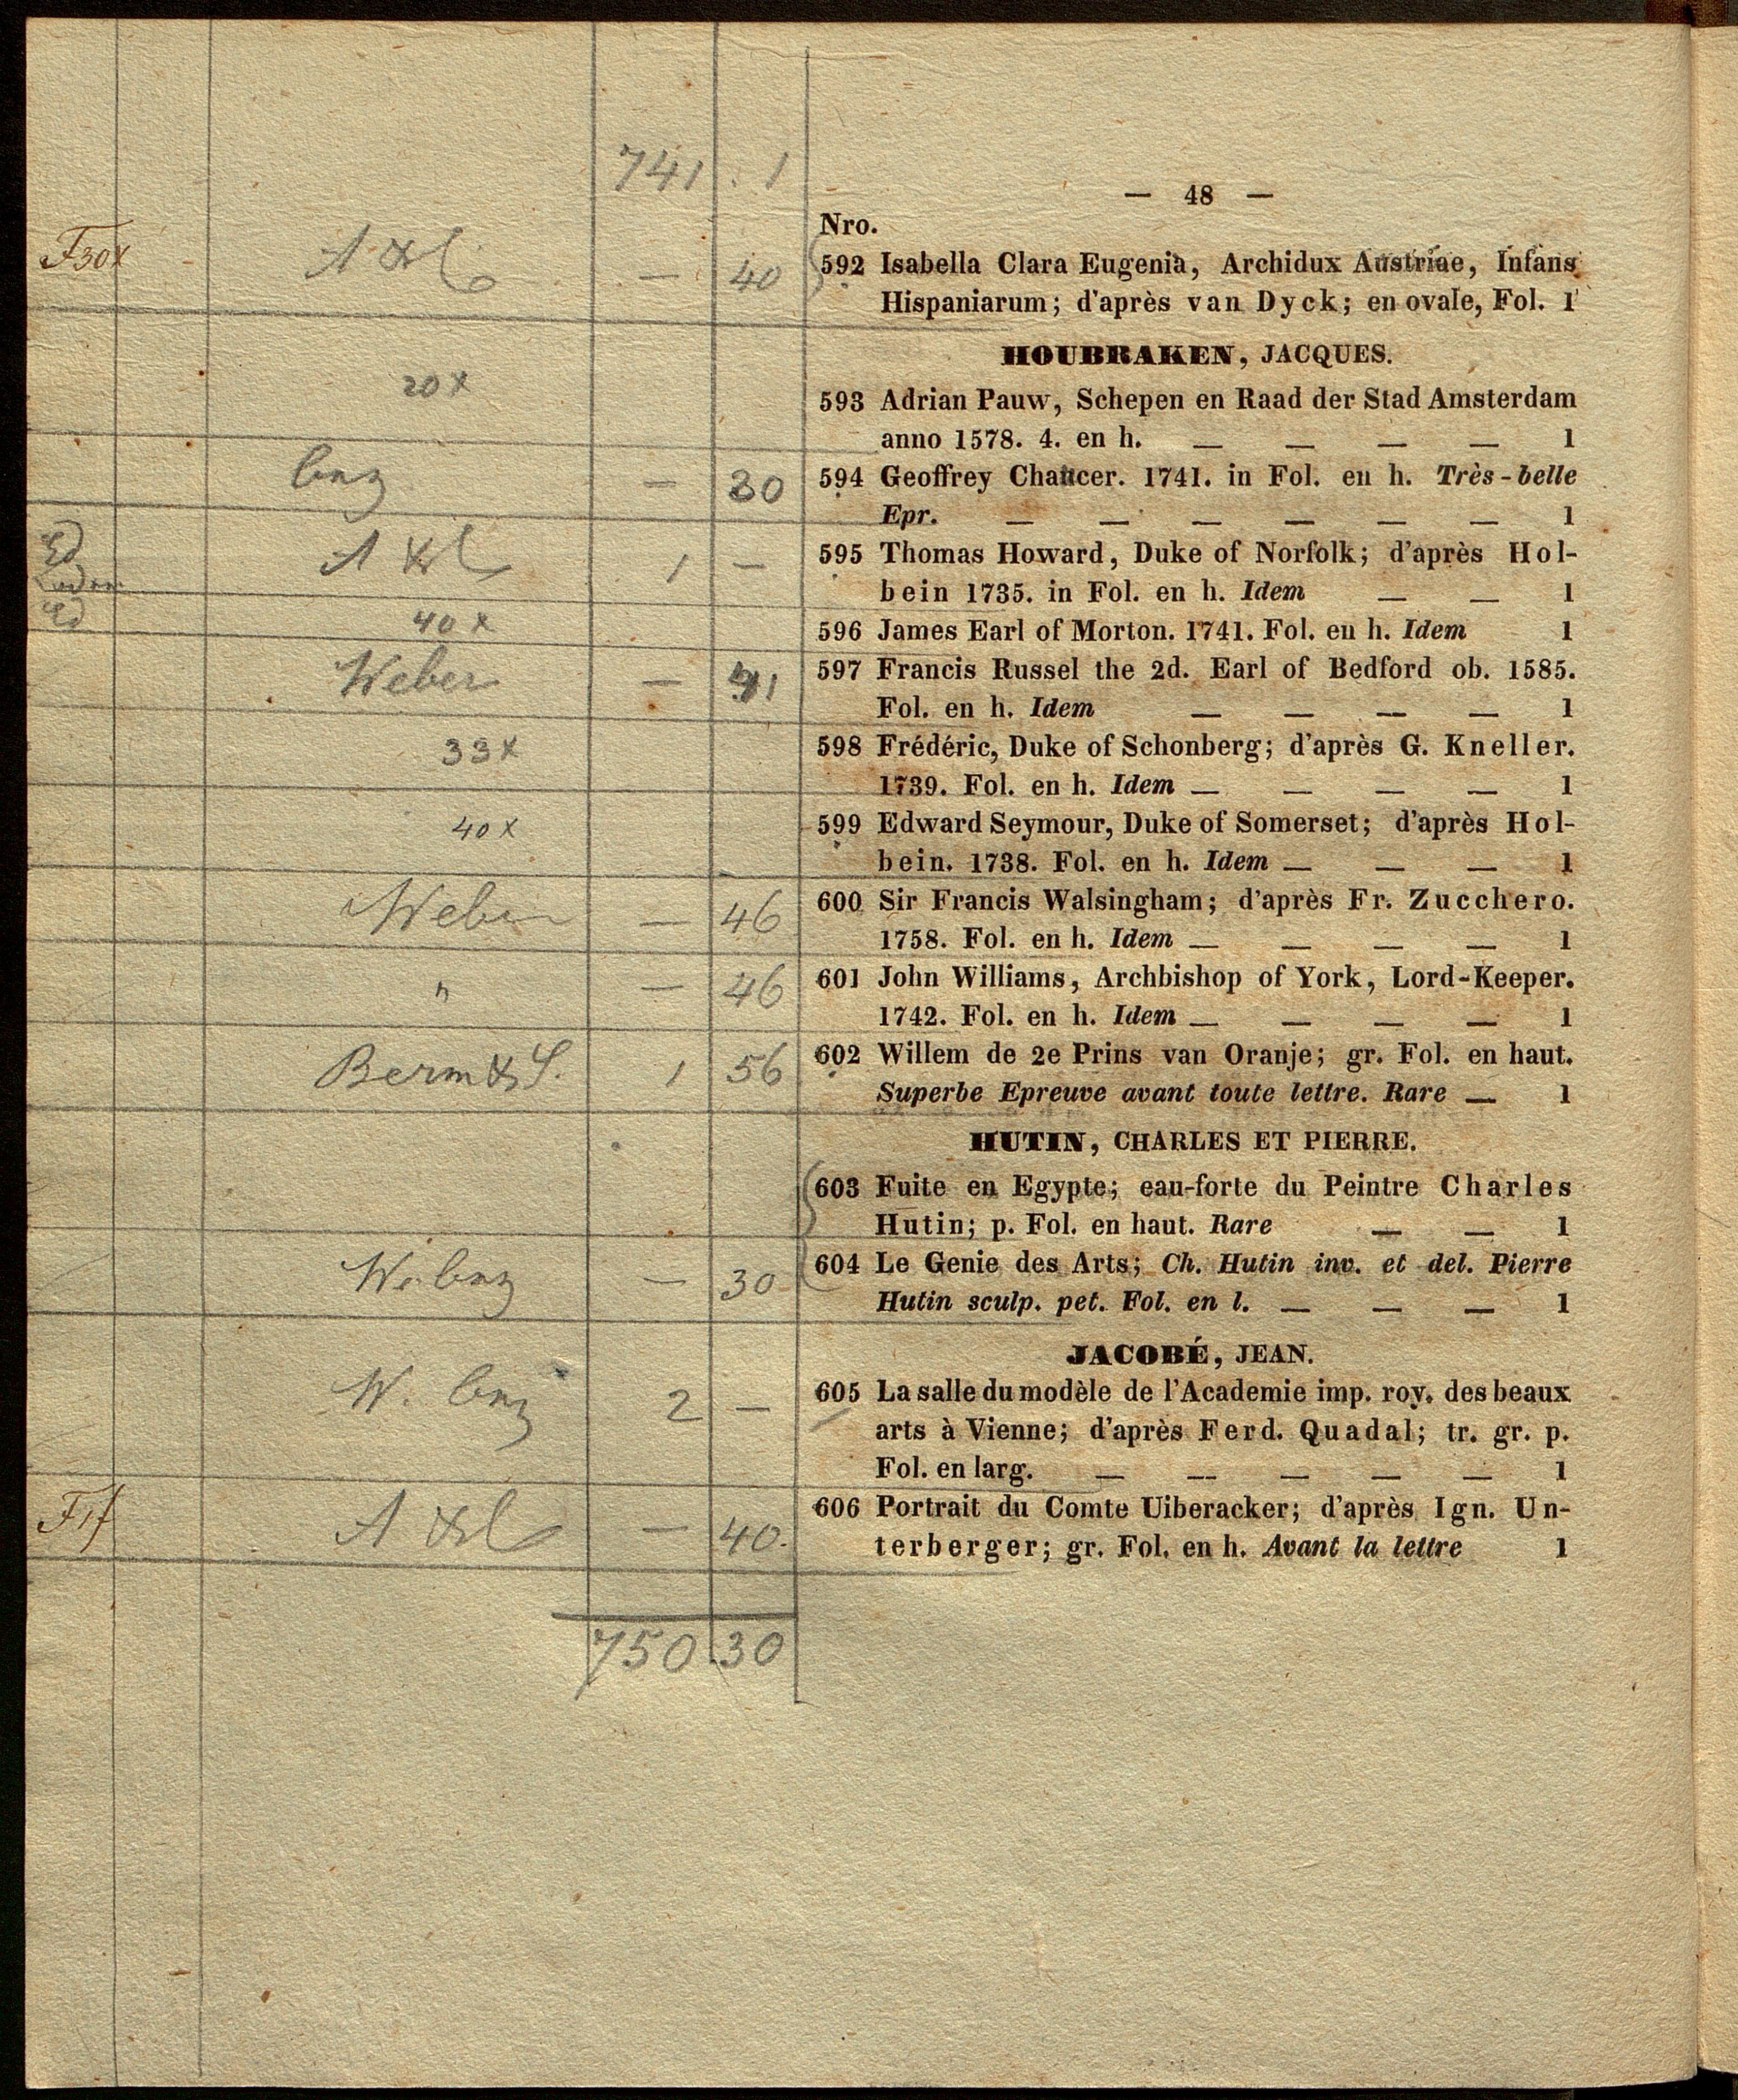 741 . 1
— 48 —
Nro.
F30x — 40 592 Isabella Clara Eugenia, Archidux Austriae, Infans
Hispaniarum; d'après van Dyck; en ovale, Fol. 1
HOUBRAKEN, JACQUES.
20x 593 Adrian Pauw, Schepen en Raad der Stad Amsterdam
anno 1578. 4. en h. — — — — 1
— 30 594 Geoffrey Chaucer. 1741. in Fol. en h. Très-belle
Epr. — — — — — — 1
Ed 1 — 595 Thomas Howard, Duke of Norfolk; d'après Hol-
bein 1735. in Fol. en h. Idem — — 1
Ed 40x 596 James Earl of Morton. 1741. Fol. en h. Idem 1
Weber — 597 Francis Russel the 2d. Earl of Bedford ob. 1585.
Fol. en h. Idem — — — — 1
33x 598 Frédéric, Duke of Schonberg; d'après G. Kneller.
1739. Fol. en h. Idem — — — — 1
40x 599 Edward Seymour, Duke of Somerset; d'après Hol-
bein. 1738. Fol. en h. Idem — — — 1
Weber — 46 600 Sir Francis Walsingham; d'après Fr. Zucchero.
1758. Fol. en h. Idem — — — — 1
" — 46 601 John Williams, Archbishop of York, Lord-Keeper.
1742. Fol. en h. Idem — — — — 1
Berm & S. 1 56 602 Willem de 2e Prins van Oranje; gr. Fol. en haut.
Superbe Epreuve avant toute lettre. Rare — 1
HUTIN, CHARLES ET PIERRE.
603 Fuite en Egypte; eau-forte du Peintre Charles
Hutin; p. Fol. en haut. Rare — — 1
— 30 604 Le Genie des Arts; Ch. Hutin inv. et del. Pierre
Hutin sculp. pet. Fol. en l. — — — 1
JACOBÉ, JEAN.
W. 2 — 605 La salle du modèle de l'Academie imp. roy. des beaux
arts à Vienne; d'après Ferd. Quadal; tr. gr. p.
Fol. en larg. — — — — — 1
F1f — 40. 606 Portrait du Comte Uiberacker; d'après Ign. Un-
terberger; gr. Fol. en h. Avant la lettre 1
750.30